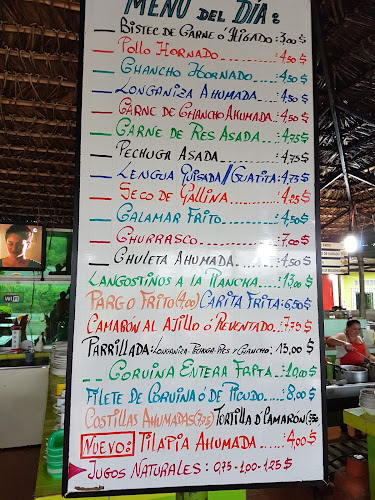 MENU DEL DÍA:
BISTEC DE CARNE Ó HÍGADO: 3,00 $
POLLO HORNADO 4,50 $
CHANCHO HORNADO 4,50 $
LONGANIZA AHUMADA 4,50 $
CARNE DE CHANCHO AHUMADA. 4,50 $
CARNE DE RES ASADA 4,75 $
PECHUGA ASADA 4,75 $
LENGUA GUISADA/GUATITA 4,75 $
SECO DE GALLINA 4,25 $
CALAMAR FRITO 4,50 $
CHURRASCO 7,00 $
CHULETA AHUMADA 4,50 $
LANGOSTINOS A LA PLANCHA 13,00 $
PARGO FRITO (4,00) CARITA FRITA: 6,50 $
CAMARÓN AL AJILLO Ó REVENTADO. 7,75 $
PARRILLADA: 13,00 $
CORVINA ENTERA FRITA 10,00 $
FILETE DE CORVINA Ó DE PICUDO 8,00 $
COSTILLAS AHUMADAS TORTILLA D' CAMARÓN
NUEVO: TILAPIA AHUMADA 4,00 $
JUGOS NATURALES: 0,75 - 1,00 - 1,25 $
WiFi